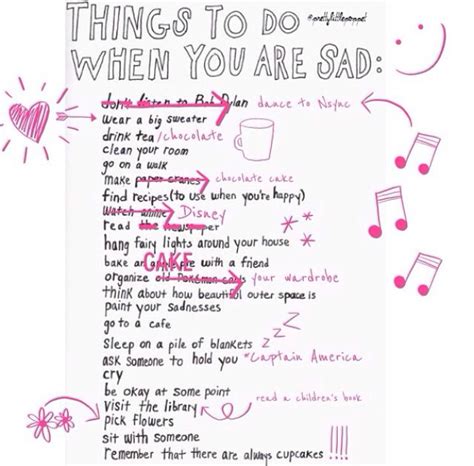 THINGS TO DO
WHEN YOU ARE SAD:
don't listen to Bob Dylan dance to Nsync
wear a big sweater
drink tea/chocolate
clean your room
go on a walk
make paper cranes chocolate cake
find recipes (to use when you're happy)
watch anime Disney
read the newspaper
hang fairy lights around your house
bake an apple pie with a friend CAKE
organize old Pokémon cards your wardrobe
think about how beautiful outer space is
paint your sadnesses
go to a cafe
sleep on a pile of blankets z z z
ask someone to hold you *Captain America
cry
be okay at some point
visit the library read a children's book
pick flowers
sit with someone
remember that there are always cupcakes !!!!